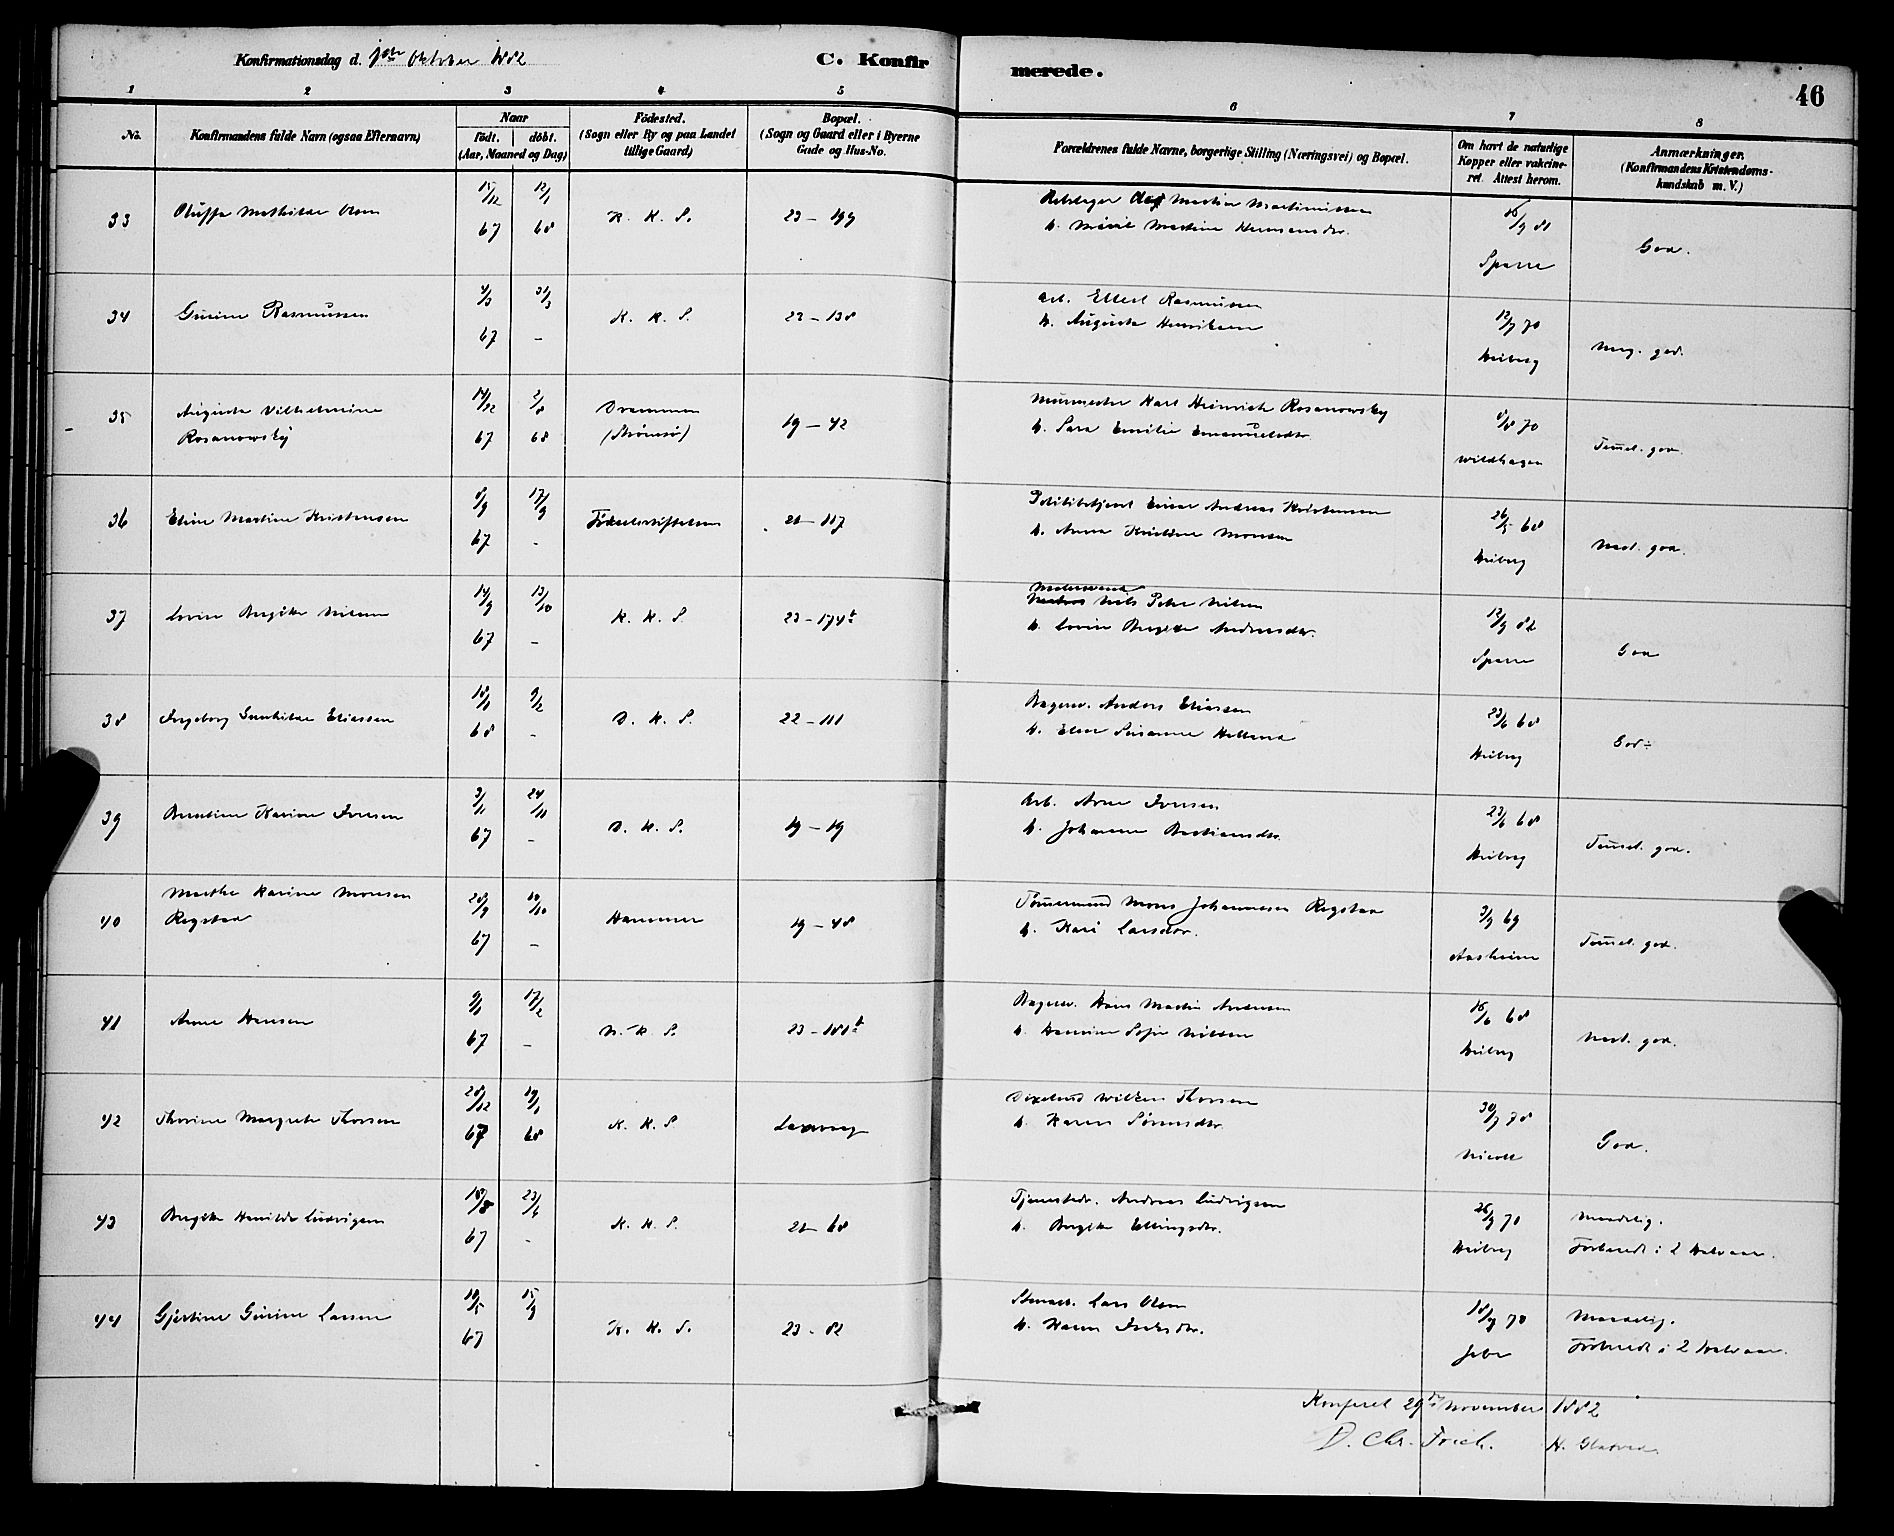 Konfirmationsdag d. Oktober 1882
C. Konfirmerede.
46
1 2 3 4 5 6 7 8
No.
Konfirmandens fulde Navn (ogsaa Efternavn)
Naar
födt. döbt.
(Aar, Maaned og Dag)
Födested.
(Sogn eller By og paa Landet
tillige Gaard)
Bopæl.
(Sogn og Gaard eller i Byerne
Gade og Hus-No.
Forældrenes fulde Navne, borgerlige Stilling (Næringsvei) og Bopæl.
Om havt de naturlige
Kopper eller vakcine-
ret. Attest herom.
Anmærkninger.
(Konfirmandens Kristendoms-
kundskab m. V.)
33 Oluffa Mathilde Olsen 15/12 67 12/1 68 K. K. S. 23 - 199
Martin Martinussen
Martine Hermansdtr.
/9 81
Sparre
God.
34 Gusine Rasmussen 4/3 67 31/3 - K. K. S. 22 - 138
Arb. Ellert Rasmussen
h. Augusta Henriksen
12/7 70
Heiberg
Meg. god.
35 Augusta Vilhelmine
Rosanowsky
14/12 67 2/8 68
Drammen
(Strömsö)
19 - 42
Murmester Karl Heinrich Rosanowsky
h. Sara Emilie Emanuelsdtr.
4/8 70
Wildhagen
Temmel. god.
36 Eline Martine Kristensen 8/9 67 17/9 - Födselsstiftelsen 21 - 117
Politibetjent Einar Andreas Kristensen
h. Anna Kristine Monsen
26/5 68
Heiberg
Mest. god.
37 Lovise Birgitte Nilsen 14/9 67 13/10 - K. K. S. 23 - 174b
Nils Peter Nilsen
h. Lovise Birgitte Andreasdtr.
12/9 82
Sparre
God
38 Ingeborg Gunhilda Eliassen 18/1 68 9/2 - D. K. S. 22 - 111
Bagersv. Anders Eliassen
h. Elen Susanne Helland
23/6 68
Heiberg
God
39 Berntine Karine Iversen 3/11 67 24/11 - D. K. S. 19 - 19
Arb. Arne Iversen
h. Johanne Bastiansdtr.
23/6 68
Heiberg
Temmel. god.
40 Marthe Karine Monsen
Rogstad
28/9 67 /10 -
Hammer
19 - 48
Tömmermand Mons Johannessen Rogstad
h. Kari Larsdtr.
3/9 69
Aasheim
Temmel. god.
41 Anna Hansen 9/1 67 17/2 - N. K. S. 23 - 181b
Bagersv. Hans Martin Andersen
h. Hansine Sofie Nilsen
16/6 68
Heiberg
Mest. god.
42 Thorine Margrete Thorsen 28/12 67 19/1 68 K. K. S. Laxevaag
Wilken Thorsen
h. Karen Sörensdtr.
30/7 78
Nicoll
God.
43 Birgitte Henrikke Ludvigsen 18/3 67 23/4 - K. K. S. 21 - 68
Tjenestedr. Andreas Ludvigsen
h. Birgitte Ellingsdtr.
26/9 70
Heiberg
Maadelig.
Forberedt i 2 Halvaar.
44 Gjertine Gurine Larsen 18/5 67 15/9 K. K. S. 23 - 82
Stenarb. Lars Olsen
h. Karen
18/9 78
Jebe
Maadelig.
Forberedt i 2 Halvaar.
Konfereret 29de November 1882
D. Chr. Frich.